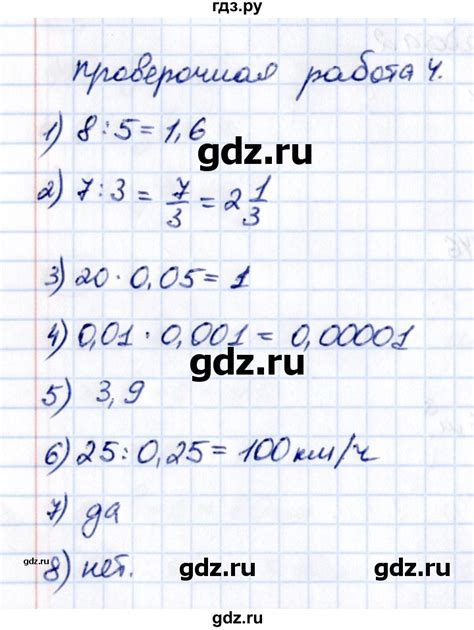 гдз.ру
проверочная работа 4.
1) 8 : 5 = 1,6
gdz.ru
2) 7 : 3 = 7/3 = 2 1/3
3) 20 · 0,05 = 1
4) 0,01 · 0,001 = 0,00001
gdz.ru
5) 3,9
6) 25 : 0,25 = 100 км/ч
7) да
gdz.ru
gdz.ru
gdz.ru
8) нет.
gdz.ru